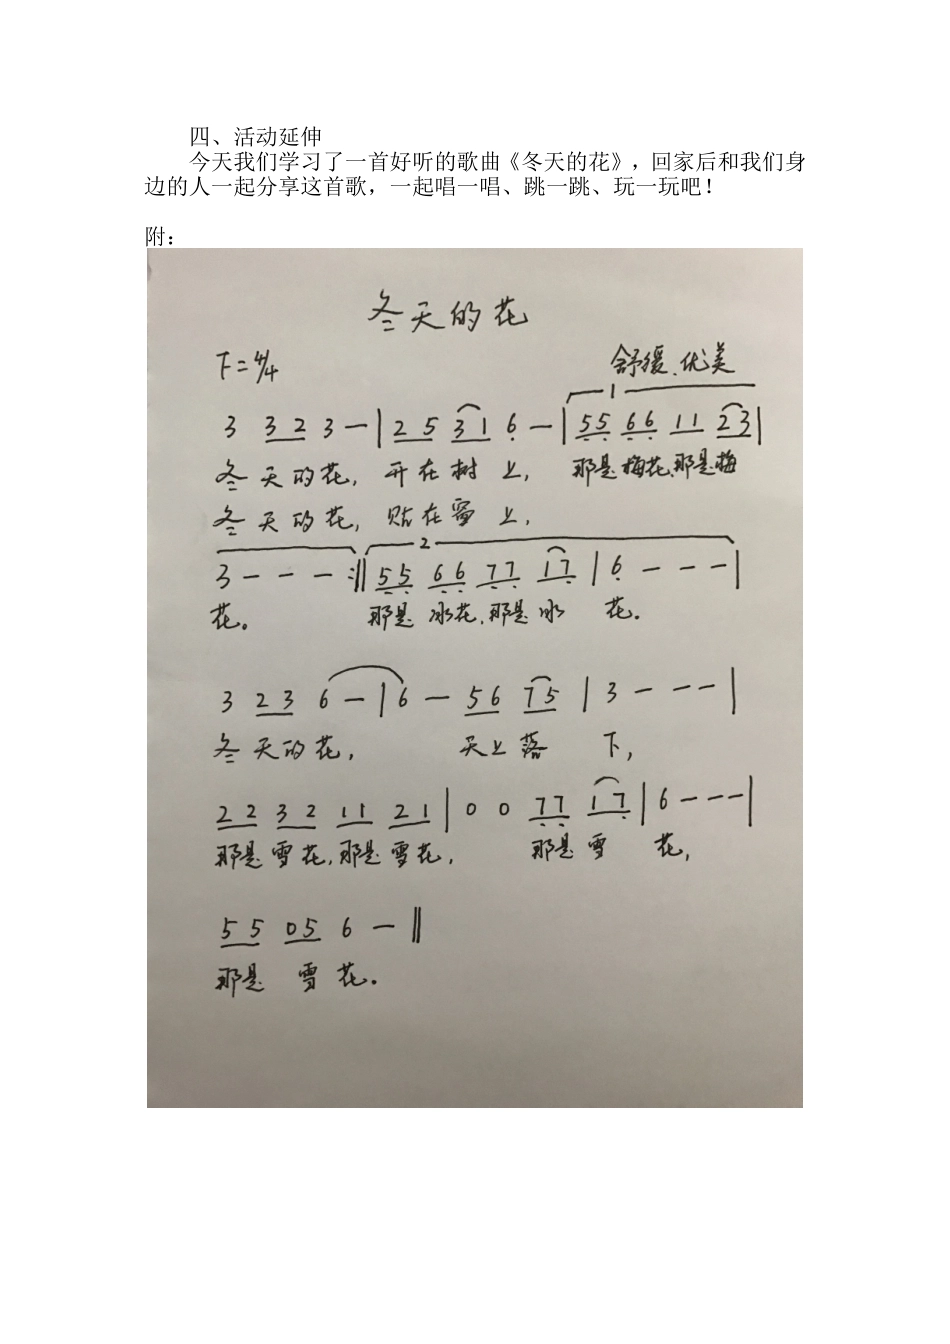 四、活动延伸
今天我们学习了一首好听的歌曲《冬天的花》，回家后和我们身
边的人一起分享这首歌，一起唱一唱、跳一跳、玩一玩吧！
附：
冬天的花
F=4/4 舒缓、优美
1
3 3 2 3 — | 2 5 3 1 6 — | 5 5 6 6 1 1 2 3 |
冬 天 的 花， 开 在 树 上， 那是梅花、那是梅
冬 天 的 花， 贴 在 窗 上，
2
3 - - - :‖ 5 5 6 6 7 7 1 7 | 6 - - - |
花。 那是 冰花、那是 冰 花。
3 2 3 6 — | 6 — 5 6 7 5 | 3 - - - |
冬 天 的 花， 天上 落 下，
2 2 3 2 1 1 2 1 | 0 0 7 7 1 7 | 6 - - - |
那是 雪花，那是 雪花， 那是 雪 花，
5 5 0 5 6 — ‖
那是 雪 花。